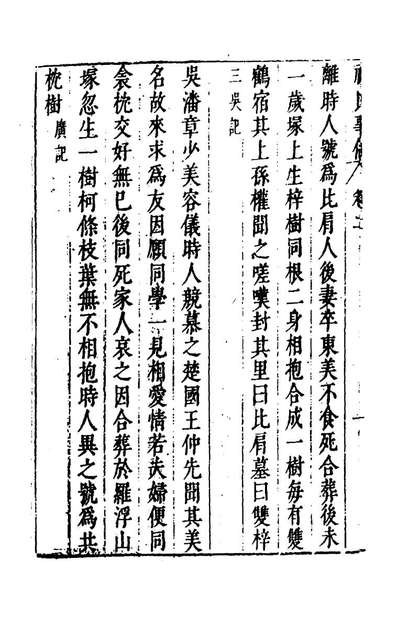 離時人號為比肩人後妻卒東美不食死合葬後未
一歲冢上生梓樹同根二身相抱合成一樹每有雙
鶴宿其上孫權聞之嗟嘆封其里曰比肩墓曰雙梓
三吳記
吳潘章少美容儀時人競慕之楚國王仲先聞其美
名故來求為友因願同學一見相愛情若夫婦便同
衾枕交好無已後同死家人哀之因合葬於羅浮山
塚忽生一樹柯條枝葉無不相抱時人異之號為共
枕樹 廣記